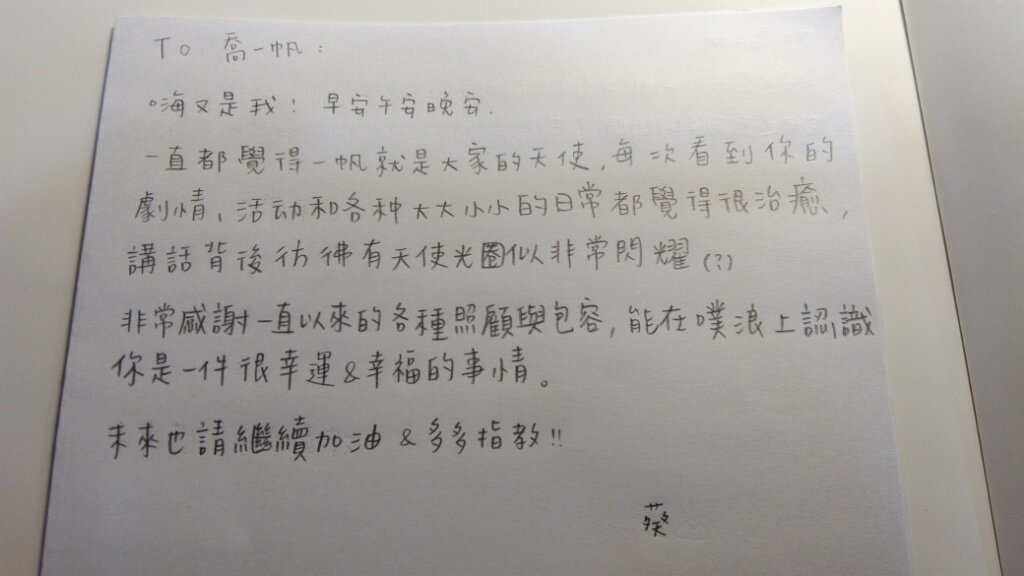 To 喬一帆:
嗨又是我! 早安午安晚安.
一直都覺得一帆就是大家的天使,每次看到你的
劇情、活动和各种大大小小的日常都覺得很治癒,
講話背後彷彿有天使光圈似非常閃耀(?)
非常感謝一直以來的各種照顧與包容,能在噗浪上認識
你是一件很幸運&幸福的事情。
未來也請繼續加油&多多指教!!
蔡